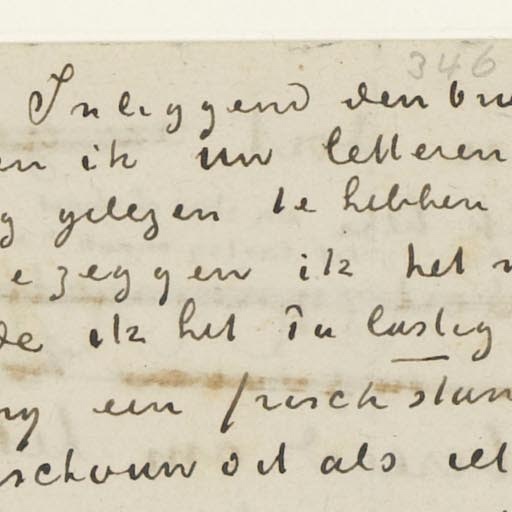 346
Inliggend den
en ik uw letteren
gelezen te hebben
zeggen ik het
de ik het in lastig
een frisch
als